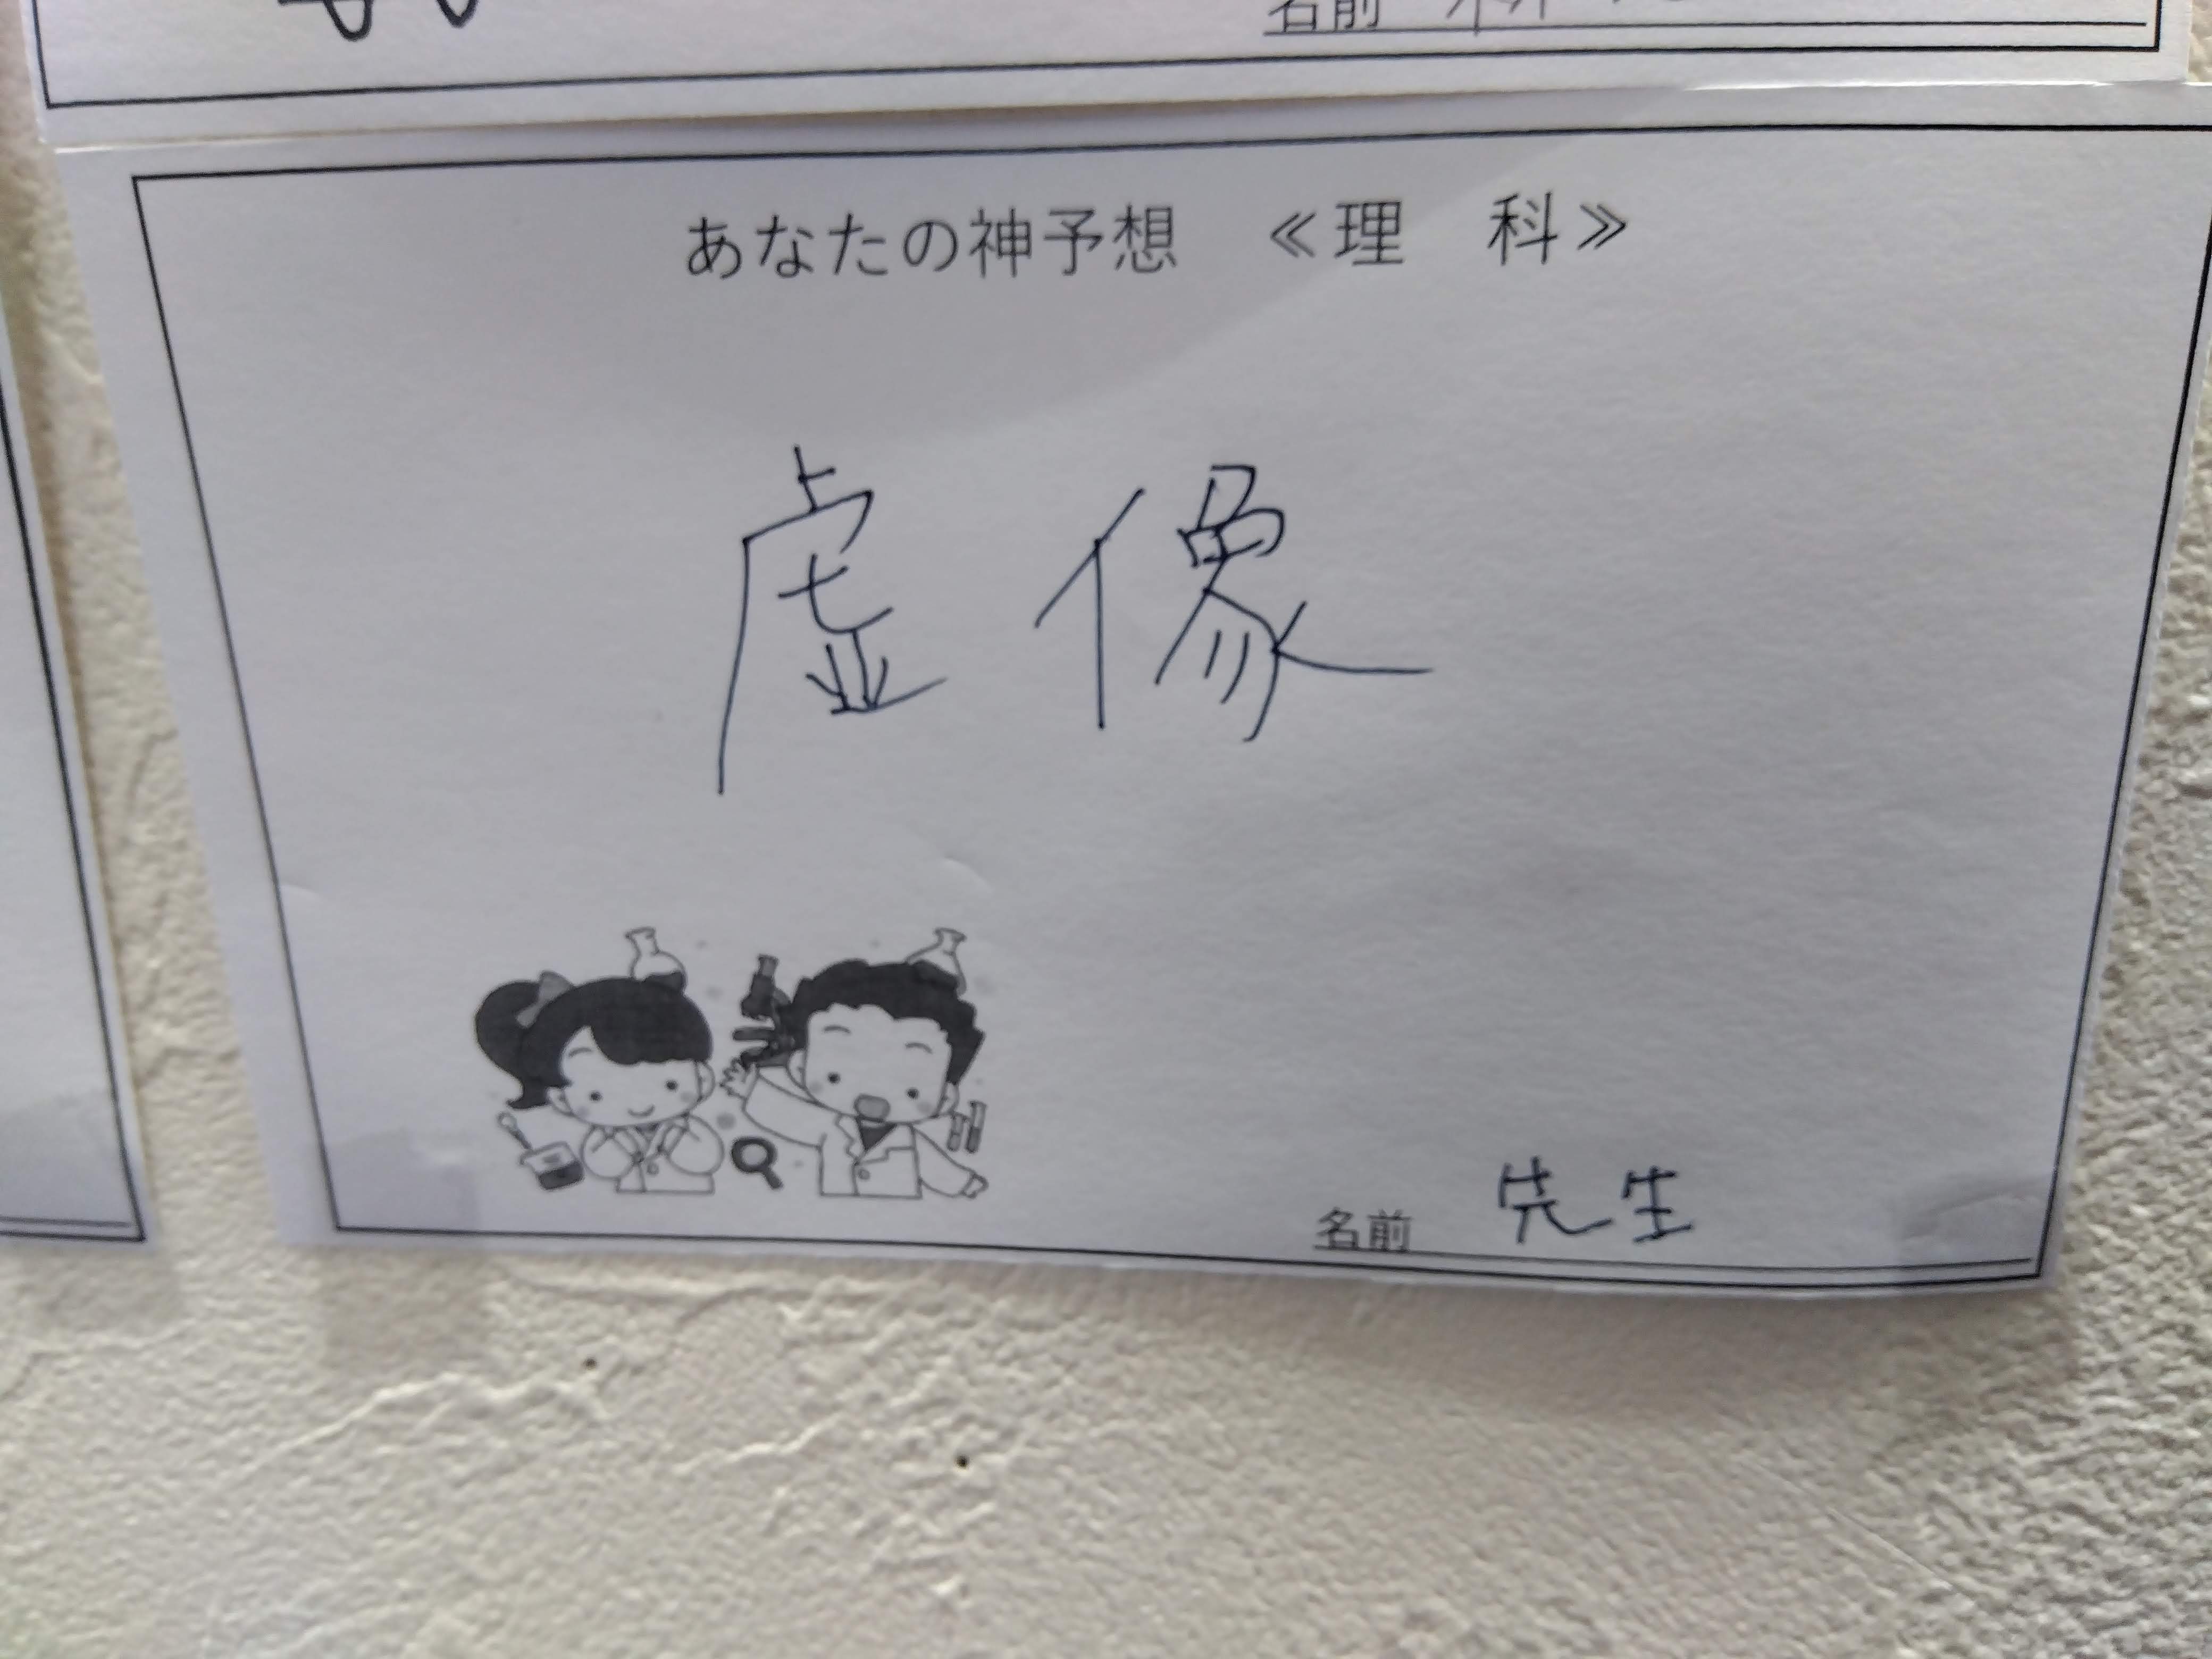 名前
あなたの神予想 ≪理 科≫
虚像
名前 先生